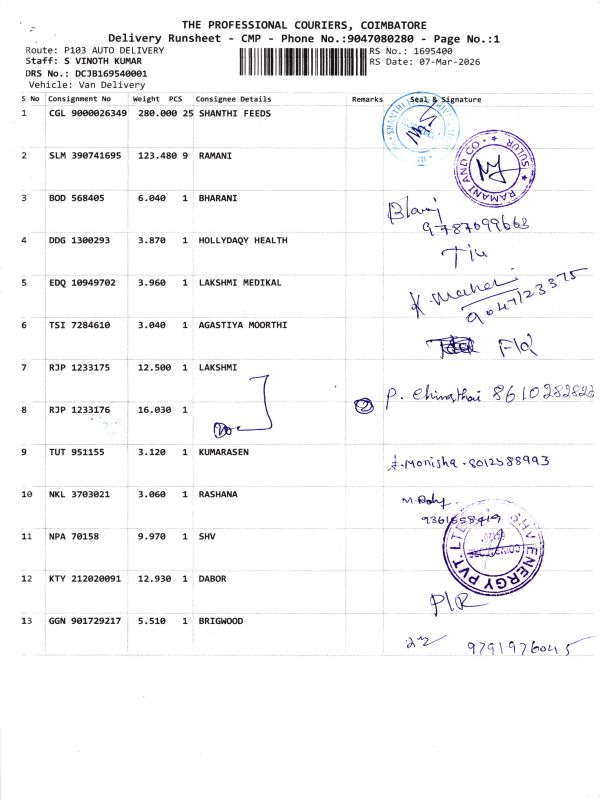 THE PROFESSIONAL COURIERS, COIMBATORE
Delivery Runsheet - CMP - Phone No.:9047080280 - Page No.:1
Route: P103 AUTO DELIVERY
RS No.: 1695400
Staff: S VINOTH KUMAR
RS Date: 07-Mar-2026
DRS No.: DCJB169540001
Vehicle: Van Delivery
S No Consignment No Weight PCS Consignee Details Remarks Seal & Signature
1 CGL 9000026349 280.000 25 SHANTHI FEEDS
SHANTHI
2 SLM 390741695 123.480 9 RAMANI
RAMANI AND CO SULUR
3 BOD 568405 6.040 1 BHARANI
9787099663
4 DDG 1300293 3.870 1 HOLLYDAQY HEALTH
5 EDQ 10949702 3.960 1 LAKSHMI MEDIKAL
9047123375
6 TSI 7284610 3.040 1 AGASTIYA MOORTHI
7 RJP 1233175 12.500 1 LAKSHMI
P. 8610282822
8 RJP 1233176 16.030 1
9 TUT 951155 3.120 1 KUMARASEN
Monisha - 8012588993
10 NKL 3703021 3.060 1 RASHANA
11 NPA 70158 9.970 1 SHV
SHV ENERGY PVT. LTD
12 KTY 212020091 12.930 1 DABOR
13 GGN 901729217 5.510 1 BRIGWOOD
9791976045